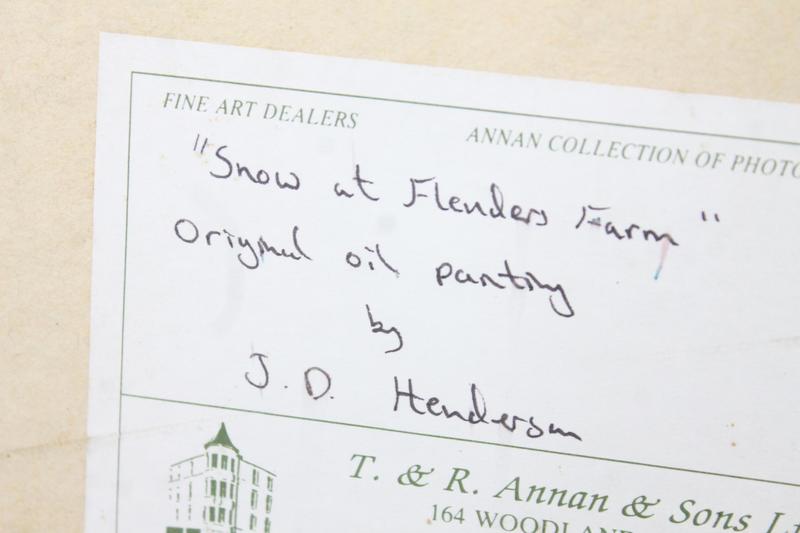 FINE ART DEALERS
ANNAN COLLECTION OF PHOTO
"Snow at Flenders Farm"
Original oil panting
by
J. D. Henderson
T. & R. Annan & Sons Lt
164 WOODLAN